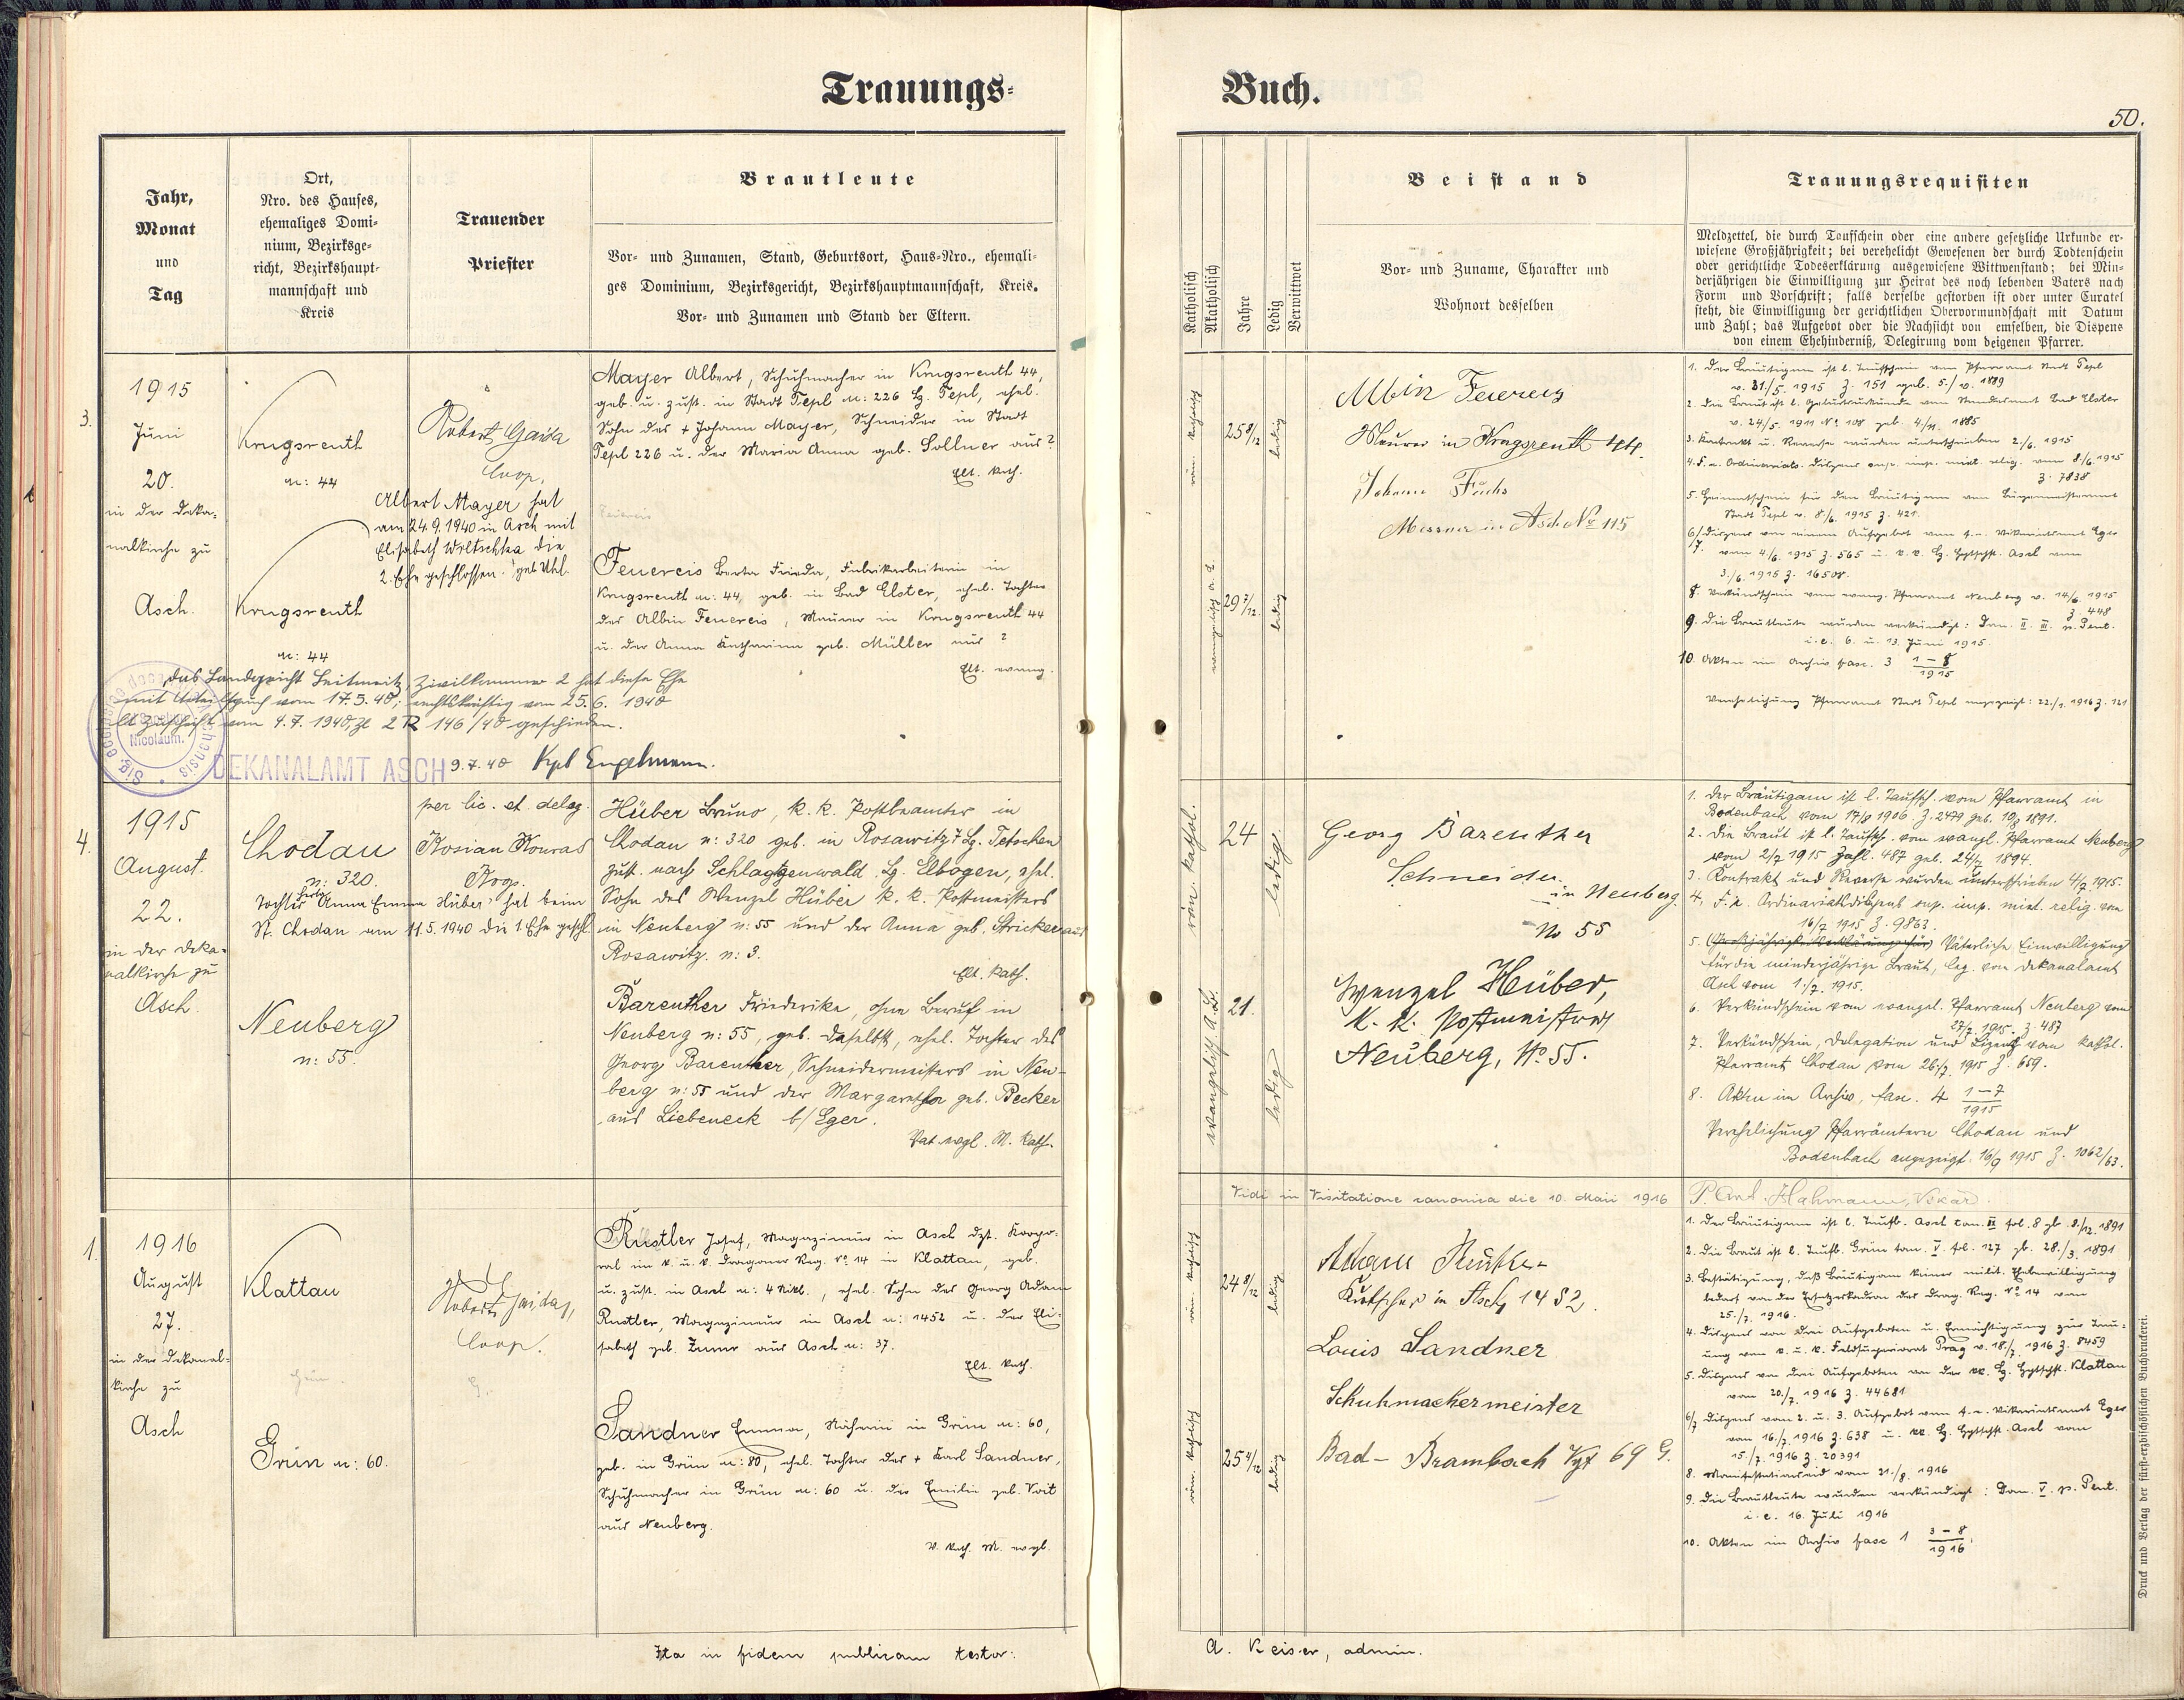 Trauungs-
Buch.
50.
Jahr,
Monat
und
Tag
Ort,
Nro. des Hauses,
ehemaliges Domi-
nium, Bezirksge-
richt, Bezirkshaupt-
mannschaft und
Kreis
Trauender
Priester
Brautleute
Vor- und Zunamen, Stand, Geburtsort, Haus-Nro., ehemali-
ges Dominium, Bezirksgericht, Bezirkshauptmannschaft, Kreis.
Vor- und Zunamen und Stand der Eltern.
Katholisch
Akatholisch
Jahre
Ledig
Verwittwet
Beistand
Vor- und Zuname, Charakter und
Wohnort desselben
Trauungsrequisiten
Meldzettel, die durch Taufschein oder eine andere gesetzliche Urkunde er-
wiesene Großjährigkeit; bei verehelicht Gewesenen der durch Todtenschein
oder gerichtliche Todeserklärung ausgewiesene Wittwenstand; bei Min-
derjährigen die Einwilligung zur Heirat des noch lebenden Vaters nach
Form und Vorschrift; falls derselbe gestorben ist oder unter Curatel
steht, die Einwilligung der gerichtlichen Obervormundschaft mit Datum
und Zahl; das Aufgebot oder die Nachsicht von emselben, die Dispens
von einem Ehehinderniß, Delegirung vom deigenen Pfarrer.
3.
1915
Juni
20.
in der Deka-
nalkirche zu
Asch.
Krugsreuth
n: 44
Krugsreuth
n: 44
Robert
Coop.
Albert Mayer hat
am 24.9.1940 in Asch mit
Elisabeth Wretschka die
2. Ehe geschlossen. geb. Uhl.
Mayer Albert, Schuhmacher in Krugsreuth 44,
geb. u. zust. in Stadt Tepl n: 226 Bz. Tepl, ehel.
Sohn des + Johann Mayer, Schneider in Stadt
Tepl 226 u. der Maria Anna geb. Sollner aus ?
Elt. kath.
Feuereis Berta Frieda, Fabrikarbeiterin in
Krugsreuth n: 44, geb. in Bad Elster, ehel. Tochter
des Albin Feuereis, Maurer in Krugsreuth 44
u. der Anna Katharina geb. Müller aus ?
Elt. evang.
Das Landgericht Leitmeritz, Zivilkammer 2 hat diese Ehe
mit Urteilspruch vom 17.5.40, rechtskräftig vom 25.6. 1940
lt. Zuschrift vom 4.7. 1940, Zl 2 R 146/40 geschieden.
DEKANALAMT ASCH 9.7.40 Kpl Engelmann.
röm. katholisch
25 8/12
ledig
evangelisch A. B.
29 7/12
ledig
Albin Feuereis
Maurer in Krugsreuth 44.
Johann Fuchs
Messner in Asch No 115
1. Der Bräutigam ist l. Taufschein vom Pfarramt Stadt Tepl
v. 31./5. 1915 Z. 151 geb. 5./ v. 1889
2. Die Braut ist l. Geburtsurkunde vom Standesamt Bad Elster
v. 24/5. 1911 No 108 geb. 4/11. 1885
3. Kontrakt u. Reverse wurden unterschrieben 2./6. 1915
4. F. e. Ordinariats-Dispens sup. imp. mixt. relig. vom 8./6. 1915
Z. 7838
5. Heimatschein für den Bräutigam vom Bürgermeisteramt
Stadt Tepl v. 8./6. 1915 Z. 421.
6/ Dispens von einem Aufgebot vom f. e. Vikariatsamt Eger
7. vom 4/6. 1915 Z. 565 u. k. k. Bz. Hptschft. Asch vom
3./6. 1915 Z. 16508.
8. Verkündschein vom evang. Pfarramt Neuberg v. 14/6. 1915
Z. 448
9. Die Brautleute wurden verkündigt: Dom. II. III. p. Pent.
i. e. 6. u. 13. Juni 1915.
10. Akten im Archiv fasc. 3 1-8/1915
Verehelichung Pfarramt Stadt Tepl angezeigt: 22./1. 1916 Z. 121
4.
1915
August.
22.
in der Deka-
nalkirche zu
Asch.
Chodau
n: 320.
Neuberg
n: 55.
per lic. et deleg.
Kosian Konrad
Koop.
Tochter Herta Anna Emma Hüber hat beim
St. Chodau am 11.5.1940 die 1. Ehe geschl.
Hüber Bruno, k. k. Postbeamter in
Chodau n: 320 geb. in Rosawitz 7 Bz. Tetschen
zust. nach Schlaggenwald Bz. Elbogen, ehel.
Sohn des Wenzel Hüber k. k. Postmeisters
in Neuberg n: 55 und der Anna geb. Stricker aus
Rosawitz n: 3.
Elt. kath.
Bareuther Friederika, ohne Beruf in
Neuberg n: 55, geb. daselbst, ehel. Tochter des
Georg Bareuther, Schneidermeisters in Neu-
berg n: 55 und der Margaretha geb. Becker
aus Liebeneck b/Eger.
Vat. evgl. M. kath.
röm. kathol.
24
ledig.
evangelisch A. B.
21.
ledig
Georg Bareuther
Schneider
in Neuberg.
No 55
Wenzel Hüber,
k. k. Postmeister
Neuberg, No 55.
1. Der Bräutigam ist l. Taufsch. vom Pfarramt in
Bodenbach vom 17/8 1906 Z. 2479 geb. 10/8 1891.
2. Die Braut ist l. Taufsch. vom evangl. Pfarramt Neuberg
vom 2/7 1915 Zahl. 487 geb. 24/7 1894.
3. Kontrakt und Reverse wurden unterschrieben 4/7 1915.
4. F. e. Ordinariatsdispens sup. imp. mixt. relig. vom
16/7 1915 Z. 9863.
5. (Großjährigkeitserklärung für) Väterliche Einwilligung
für die minderjährige Braut, leg. vom Dekanalamt
Asch vom 1./7. 1915.
6. Verkündschein vom evangel. Pfarramt Neuberg vom
27/7. 1915. Z. 487
7. Verkündschein, Delegation und Lizenz vom kathol.
Pfarramt Chodau vom 26/7. 1915 Z. 659.
8. Akten im Archiv, fasc. 4 1-7/1915
Verehelichung Pfarrämtern Chodau und
Bodenbach angezeigt. 16/9 1915 Z. 1062/63.
Vidi in Visitatione canonica die 10. Maii 1916 P. Ant. Hahmann, Vikar.
1.
1916
August
27.
in der Dekanal-
kirche zu
Asch
Klattau
Grün n: 60.
Robert
Coop.
Rustler Josef, Magazineur in Asch dzt. Korpo-
ral im k. u. k. Dragoner Reg. No 14 in Klattau, geb.
u. zust. in Asch n: 4 Nikl., ehel. Sohn des Georg Adam
Rustler, Magazineur in Asch n: 1452 u. der Eli-
sabeth geb. Zumr aus Asch n: 37.
Elt. kath.
Sandner Emma, Näherin in Grün n: 60,
geb. in Grün n: 80, ehel. Tochter des + Karl Sandner,
Schuhmacher in Grün n: 60 u. der Emilie geb. Voit
aus Neuberg.
V. kath. M. evgl.
röm. katholisch
24 8/12
ledig
röm. katholisch
25 4/12
ledig
Adam Rustler
Kutscher in Asch 1452.
Louis Sandner
Schuhmachermeister
Bad-Brambach Vgt 69 G.
1. Der Bräutigam ist l. Taufb. Asch tom. II fol. 8 gb. 8./12. 1891
2. Die Braut ist l. Taufb. Grün tom. V. fol. 127 gb. 28./3. 1891
3. Bestätigung, daß Bräutigam keiner milit. Ehebewilligung
bedarf von der Ersatzeskadron des Drag. Reg. No 14 vom
25./7. 1916.
4. Dispens von drei Aufgeboten u. Ermächtigung zur Trau-
ung vom k. u. k. Feldsuperiorat Prag v. 18./7. 1916 Z. 8459
5. Dispens von drei Aufgeboten von der kk. Bz. Hptschft. Klattau
vom 20./7. 1916 Z. 44681
6/7 Dispens vom 2. u. 3. Aufgebot vom f. e. Vikariatsamt Eger
vom 16./7. 1916 Z. 638 u. kk. Bz. Hptschft. Asch vom
15./7. 1916 Z. 20391
8. Manifestationseid vom 21./8. 1916
9. Die Brautleute wurden verkündigt: Dom. V. p. Pent.
i. e. 16. Juli 1916
10. Akten im Archiv fasc 1 3-8/1916.
Ita in fidem publicam testor:
A. Keiser, admin.
Druck und Verlag der fürst-erzbischöflichen Buchdruckerei.